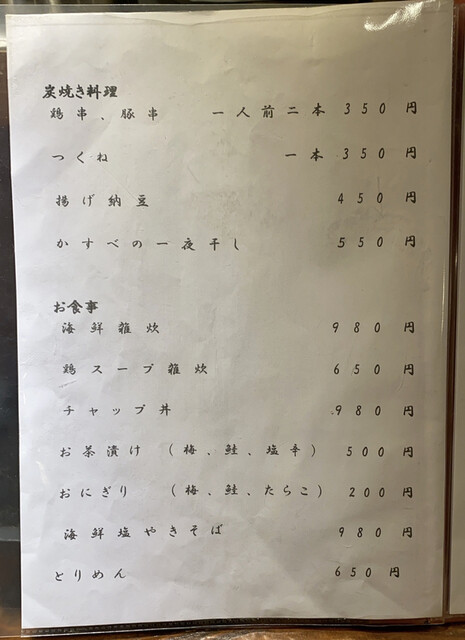 炭焼き料理
鶏串、豚串　一人前二本 350 円
つくね　一本 350 円
揚げ納豆　450 円
かすべの一夜干し　550 円
お食事
海鮮雑炊　980 円
鶏スープ雑炊　650 円
チャップ丼　980 円
お茶漬け　(梅、鮭、塩辛)　500 円
おにぎり　(梅、鮭、たらこ)　200 円
海鮮塩やきそば　980 円
とりめん　650 円